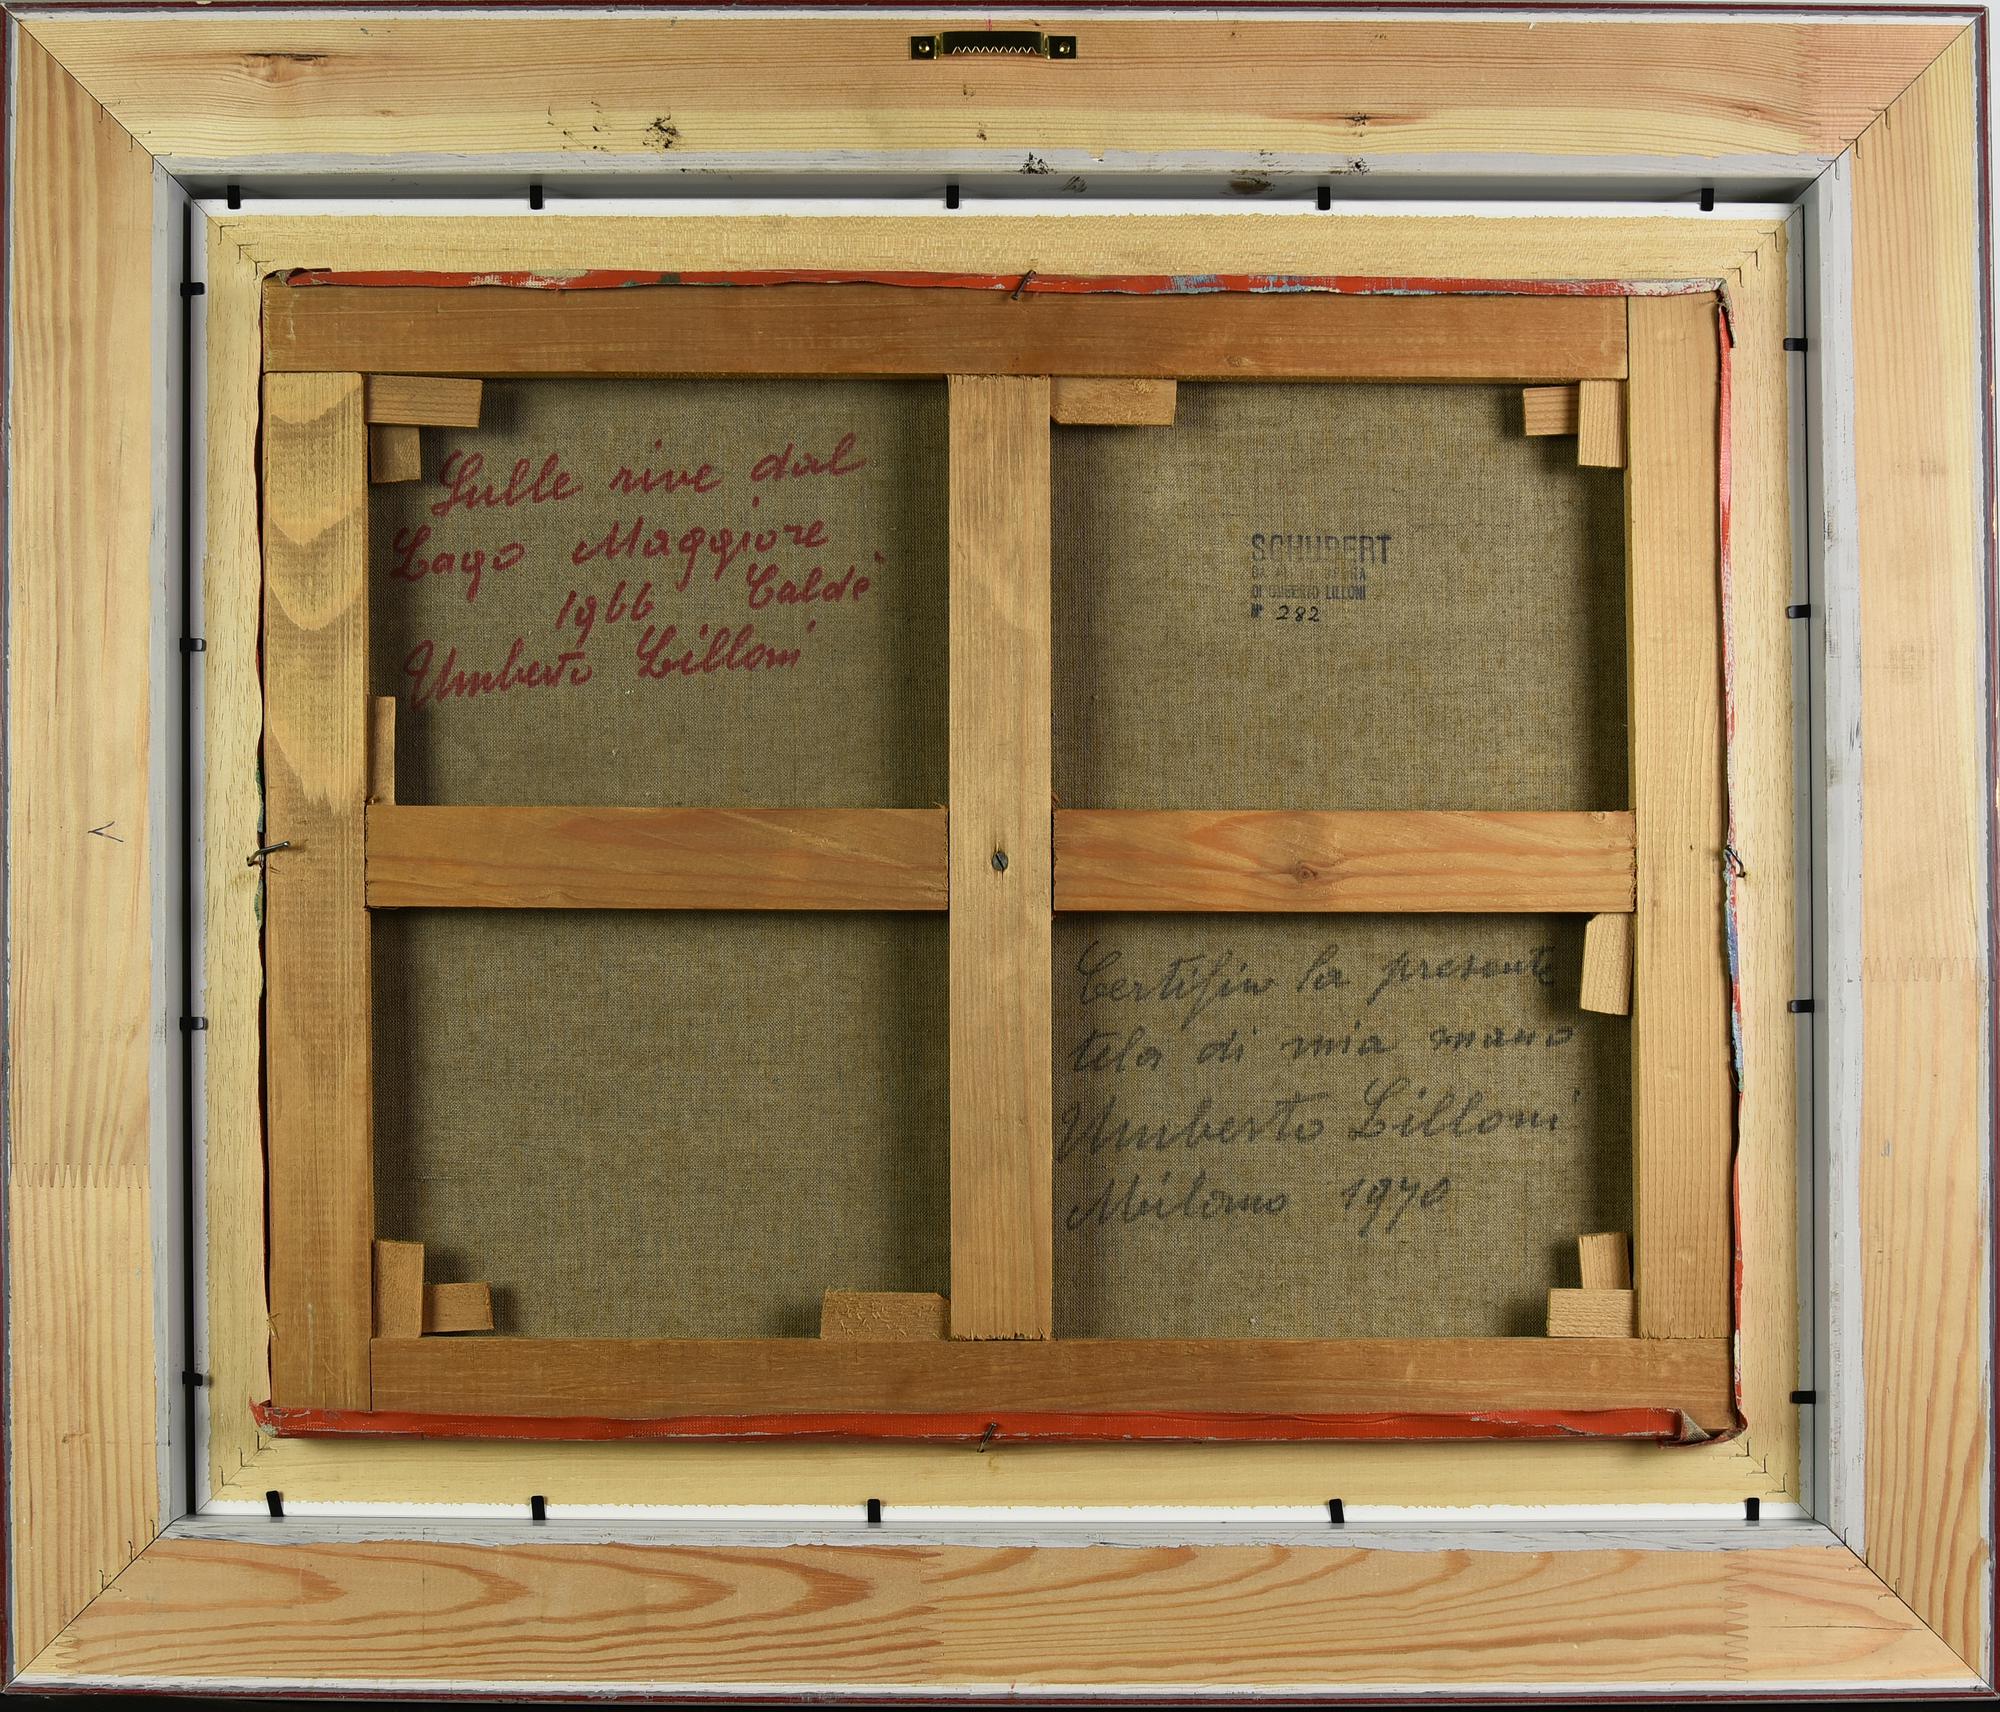 Sulle rive dal
Lago Maggiore
1966 Caldè
Umberto Lilloni
SCHUBERT
DI UMBERTO LILLONI
N° 282
Certifico la presente
tela di mia mano
Umberto Lilloni
Milano 1970